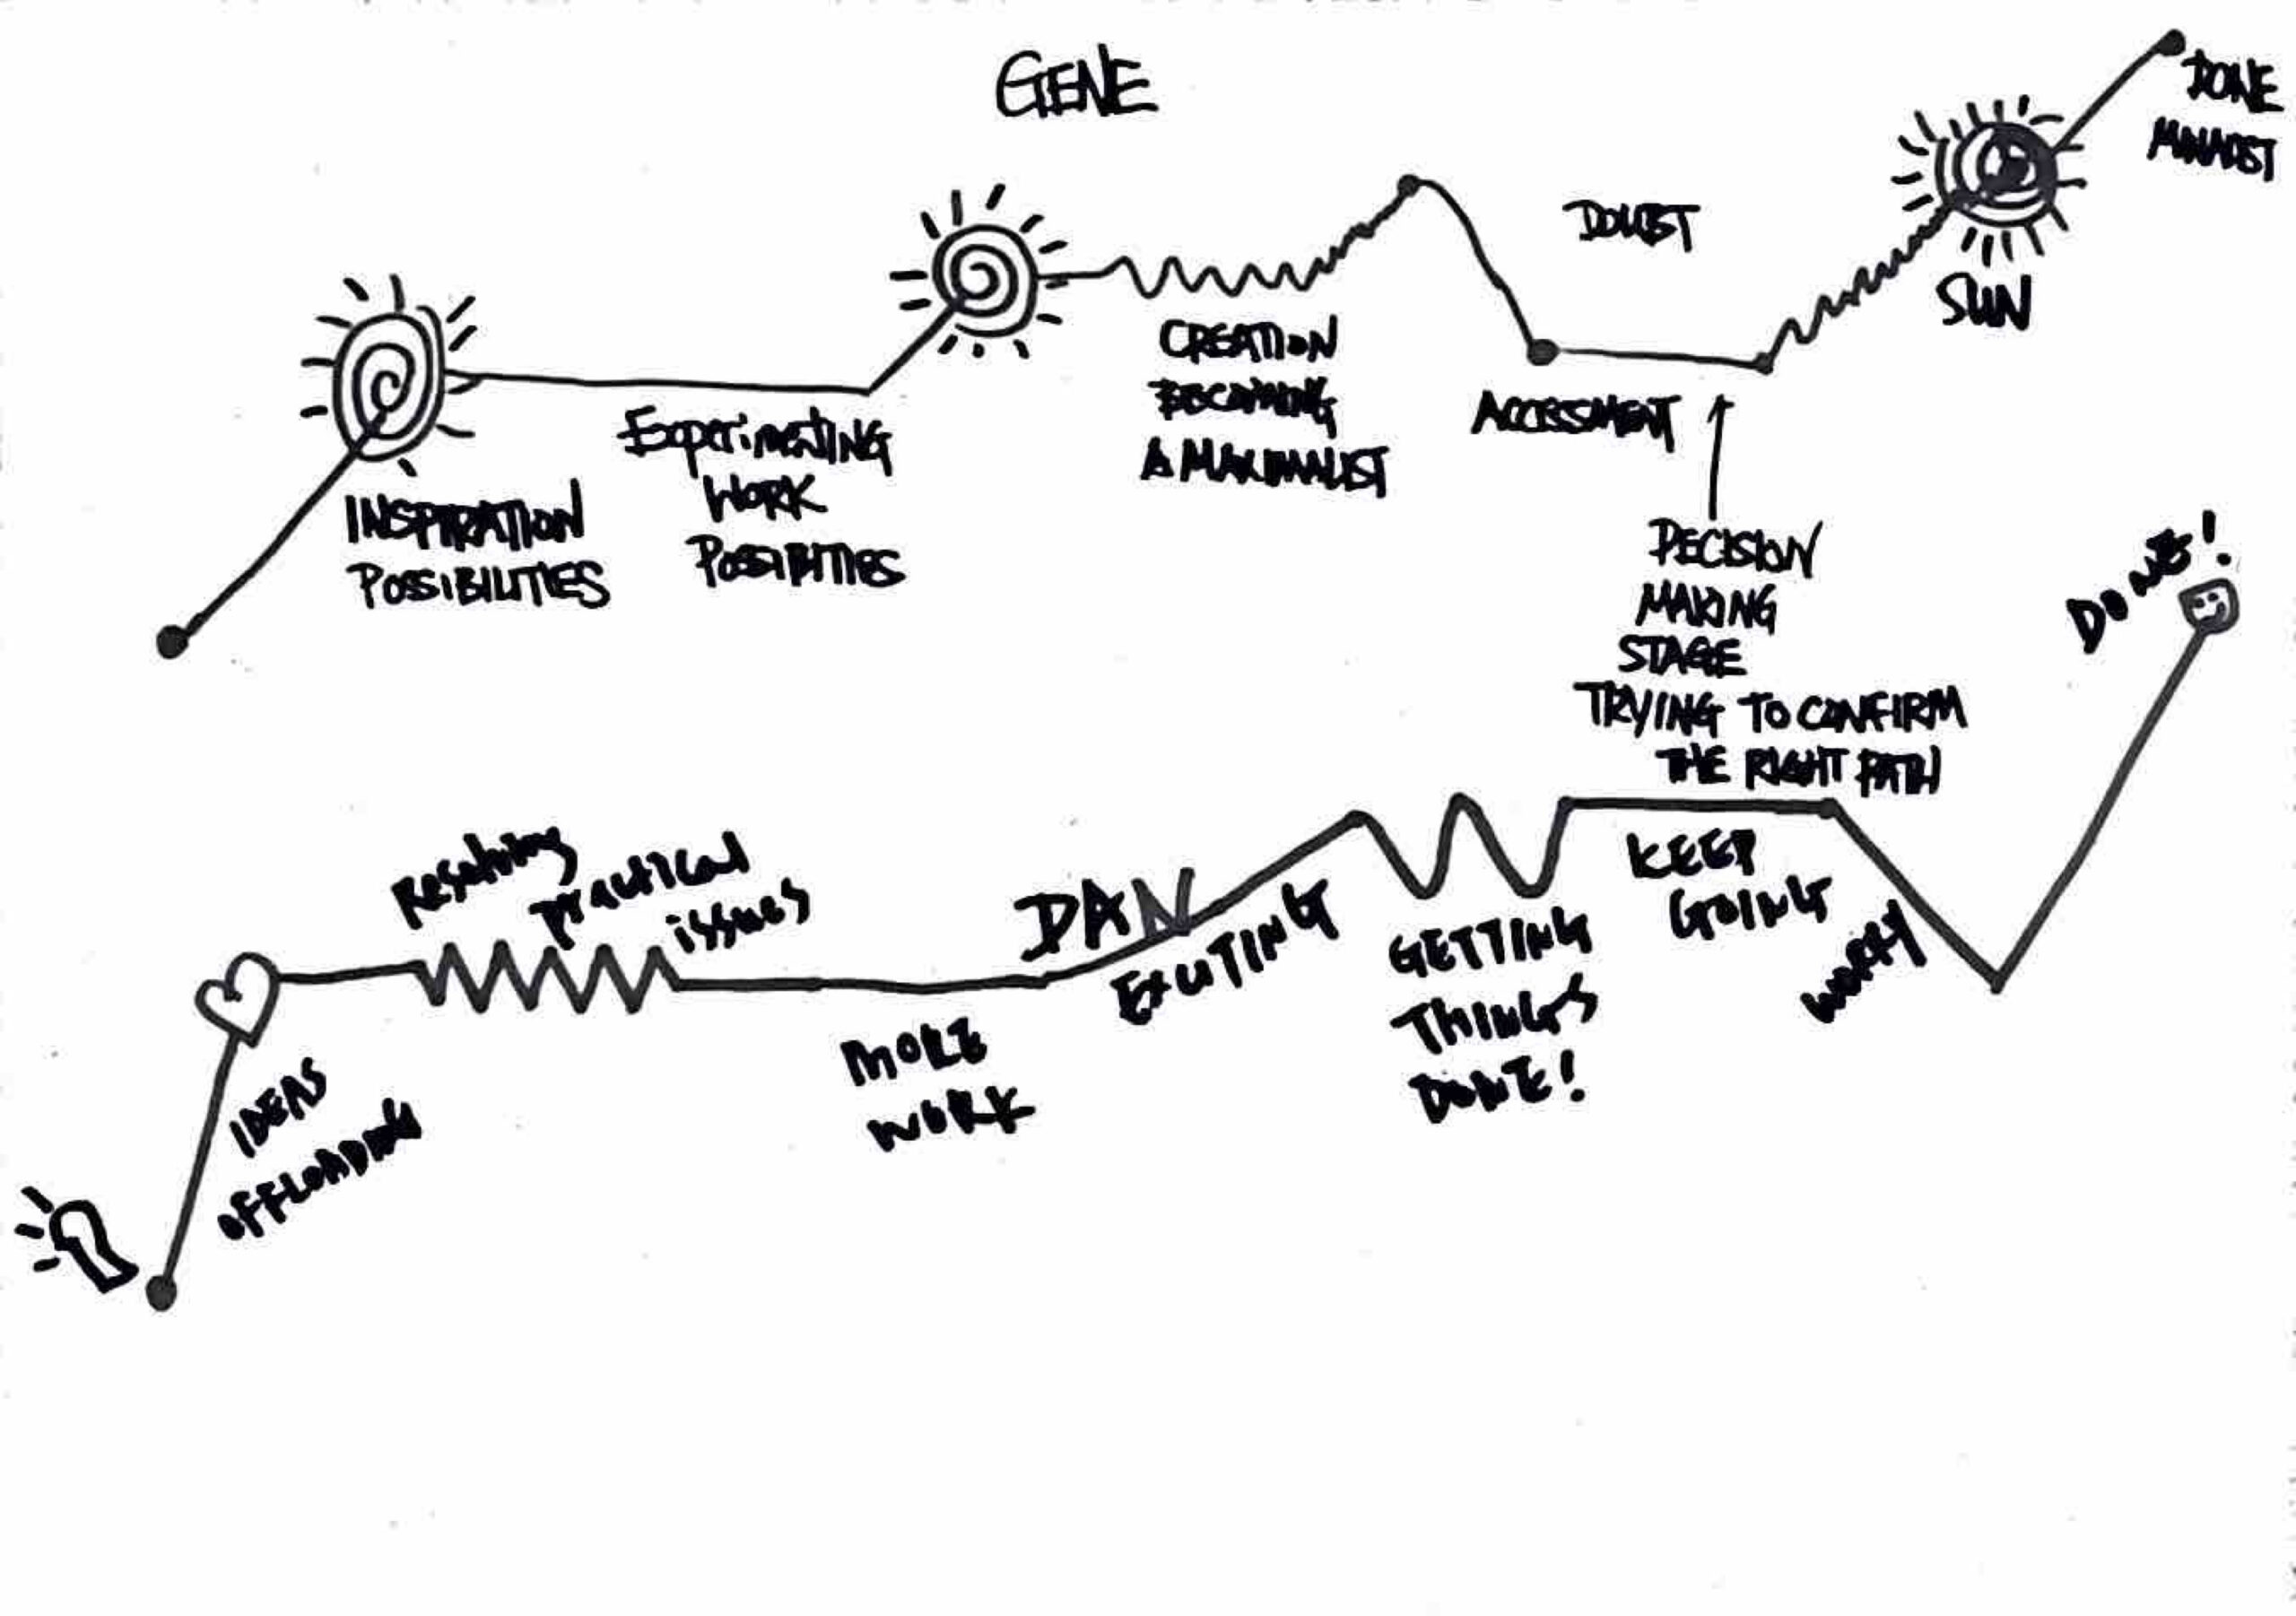 GENE
DONE
DOUBT
SUN
CREATION
BECOMING
A MAXIMALIST
ACCESSMENT
ExperimentING
WORK
POSSIBITIES
INSPIRATION
POSSIBILITIES
DECISION
MAKING
STAGE
TRYING TO CONFIRM
THE RIGHT PATH
DONE!
Resolving
practical
issues
DAN
EXCITING
KEEP
GOING
WORRY
GETTING
THINGS
DONE!
MORE
WORK
IDEAS
OFFLOADING